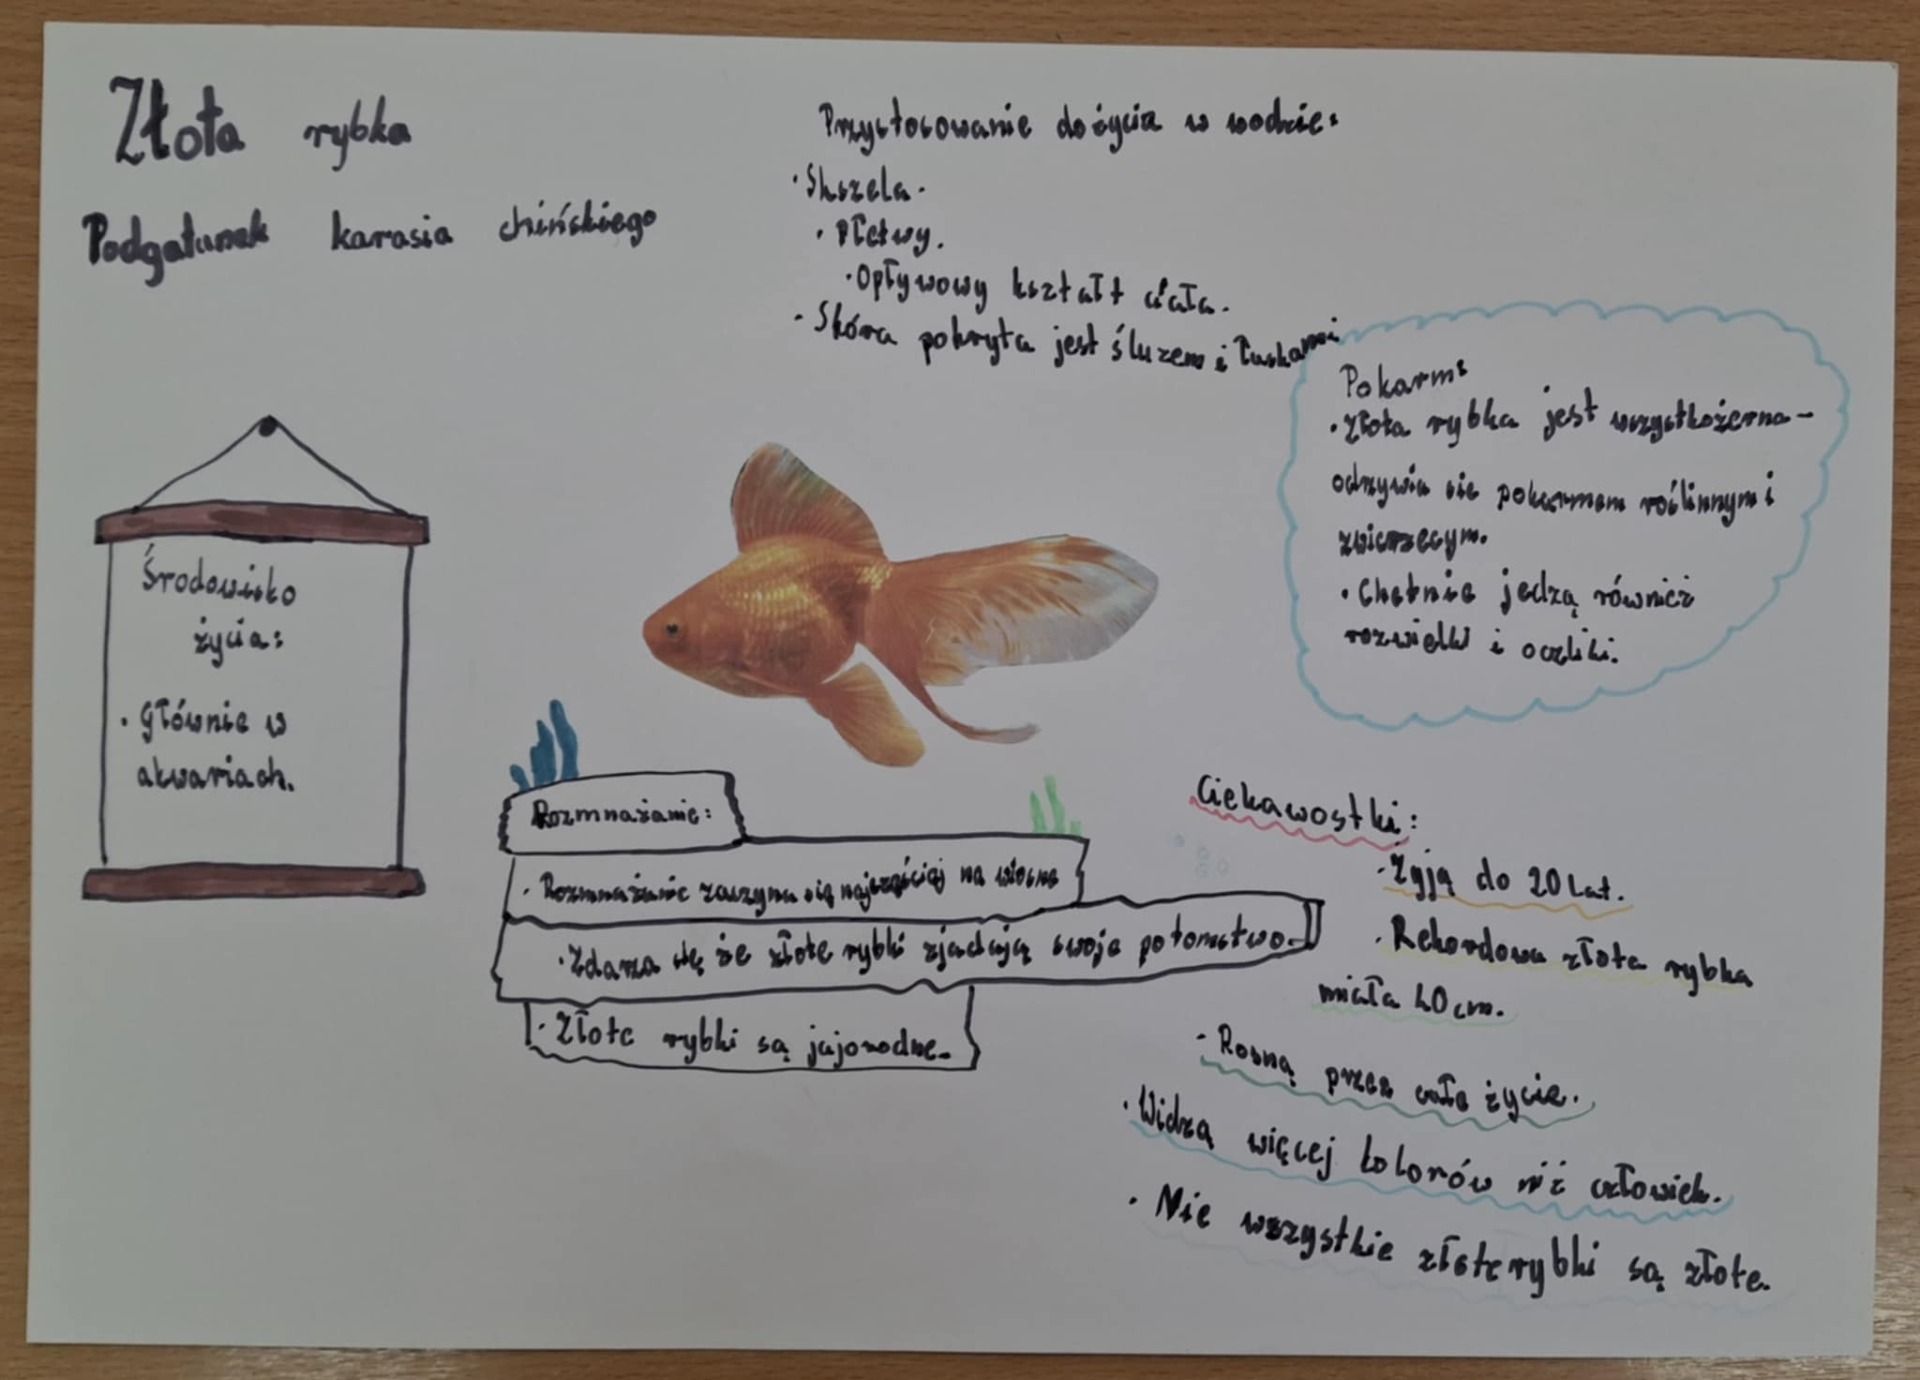 Złota rybka
Podgatunek karasia chińskiego
Przystosowanie do życia w wodzie:
· Skrzela.
· Płetwy.
· Opływowy kształt ciała.
· Skóra pokryta jest śluzem i łuskami
Pokarm:
· Złota rybka jest wszystkożerna-
odżywia sie pokarmem roślinnym i
zwierzęcym.
· Chętnie jedzą również
rozwielki i oczliki.
Środowisko
życia:
· Głównie w
akwariach.
Rozmnażanie:
· Rozmnażanie zaczyna się najczęściej na wiosne
· Zdarza się że złote rybki zjadają swoje potomstwo.
· Złote rybki są jajorodne.
Ciekawostki:
· Żyją do 20 lat.
· Rekordowa złota rybka
miała 40 cm.
· Rosną przez całe życie.
· Widzą więcej kolorów niż człowiek.
· Nie wszystkie złote rybki są złote.